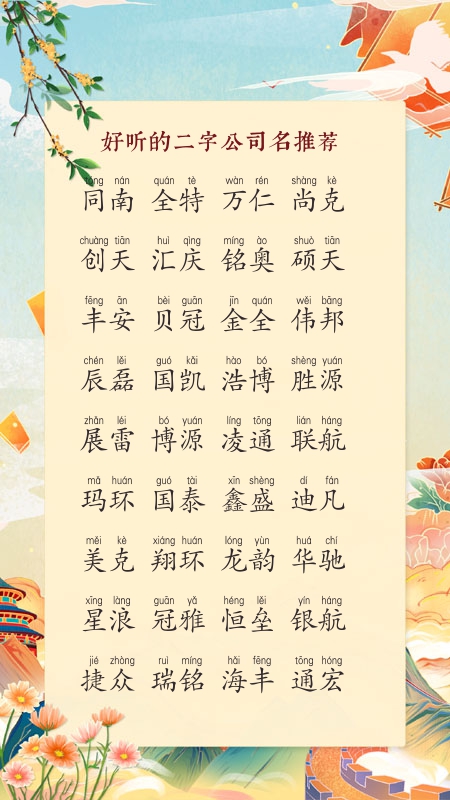 好听的二字公司名推荐
tóng nán quán tè wàn rén shàng kè
同南 全特 万仁 尚克
chuàng tiān huì qìng míng ào shuò tiān
创天 汇庆 铭奥 硕天
fēng ān bèi guān jīn quán wěi bāng
丰安 贝冠 金全 伟邦
chén lěi guó kǎi hào bó shèng yuán
辰磊 国凯 浩博 胜源
zhǎn léi bó yuán líng tōng lián háng
展雷 博源 凌通 联航
mǎ huán guó tài xīn shèng dí fán
玛环 国泰 鑫盛 迪凡
měi kè xiáng huán lóng yùn huá chí
美克 翔环 龙韵 华驰
xīng làng guān yǎ héng lěi yín háng
星浪 冠雅 恒垒 银航
jié zhòng ruì míng hǎi fēng tōng hóng
捷众 瑞铭 海丰 通宏